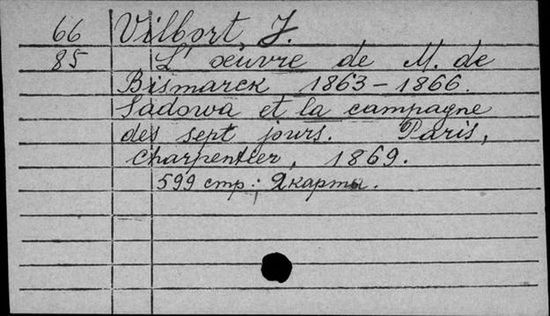 66 Vilbort J.
85 L'œuvre de M. de
Bismarck 1863-1866.
Sadowa et la campagne
des sept jours. Paris,
Charpentier, 1869.
599 стр.; 2 карты.